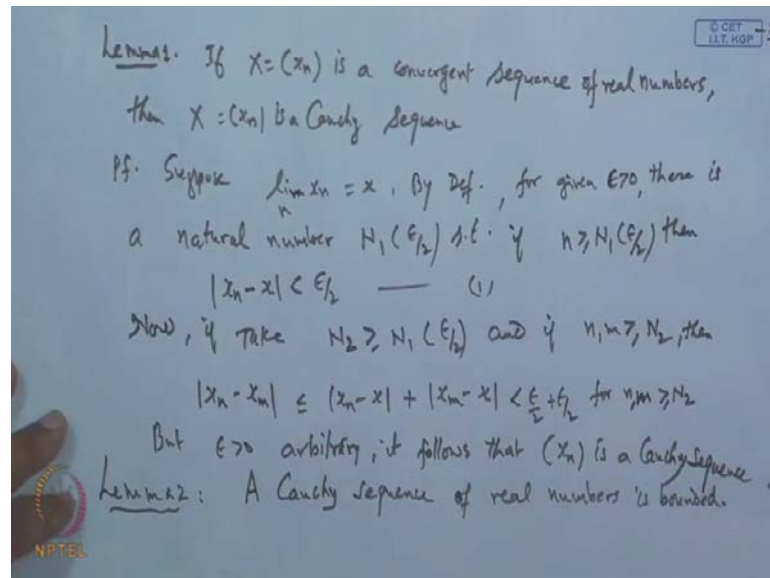 © CET
I.I.T. KGP
Lemma1. If X=(xn) is a convergent sequence of real numbers,
then X=(xn) is a Cauchy sequence
Pf. Suppose lim xn = x. By Def., for given ε>0, there is
n
a natural number N₁(ε/2) s.t. if n≥N₁(ε/2) then
|xn-x| < ε/2 —— (1)
Now, if Take N₂ ≥ N₁(ε/2) and if n,m ≥ N₂, then
|xn-xm| ≤ |xn-x| + |xm-x| < ε/2+ε/2 for n,m ≥N₂
But ε>0 arbitrary, it follows that (xn) is a Cauchy sequence
Lemma2: A Cauchy sequence of real numbers is bounded.
NPTEL